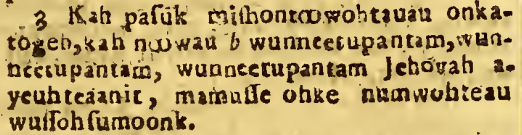 3 Kah paſuk miſhontꝏwohtauau onka-
togeh, kah nꝏwau b wunneetupantam, wun-
neetupantam, wunneetupantam Jehovah a-
yeuhteaanit, mamuſſe ohke numwohteau
wuſſohſumoonk.